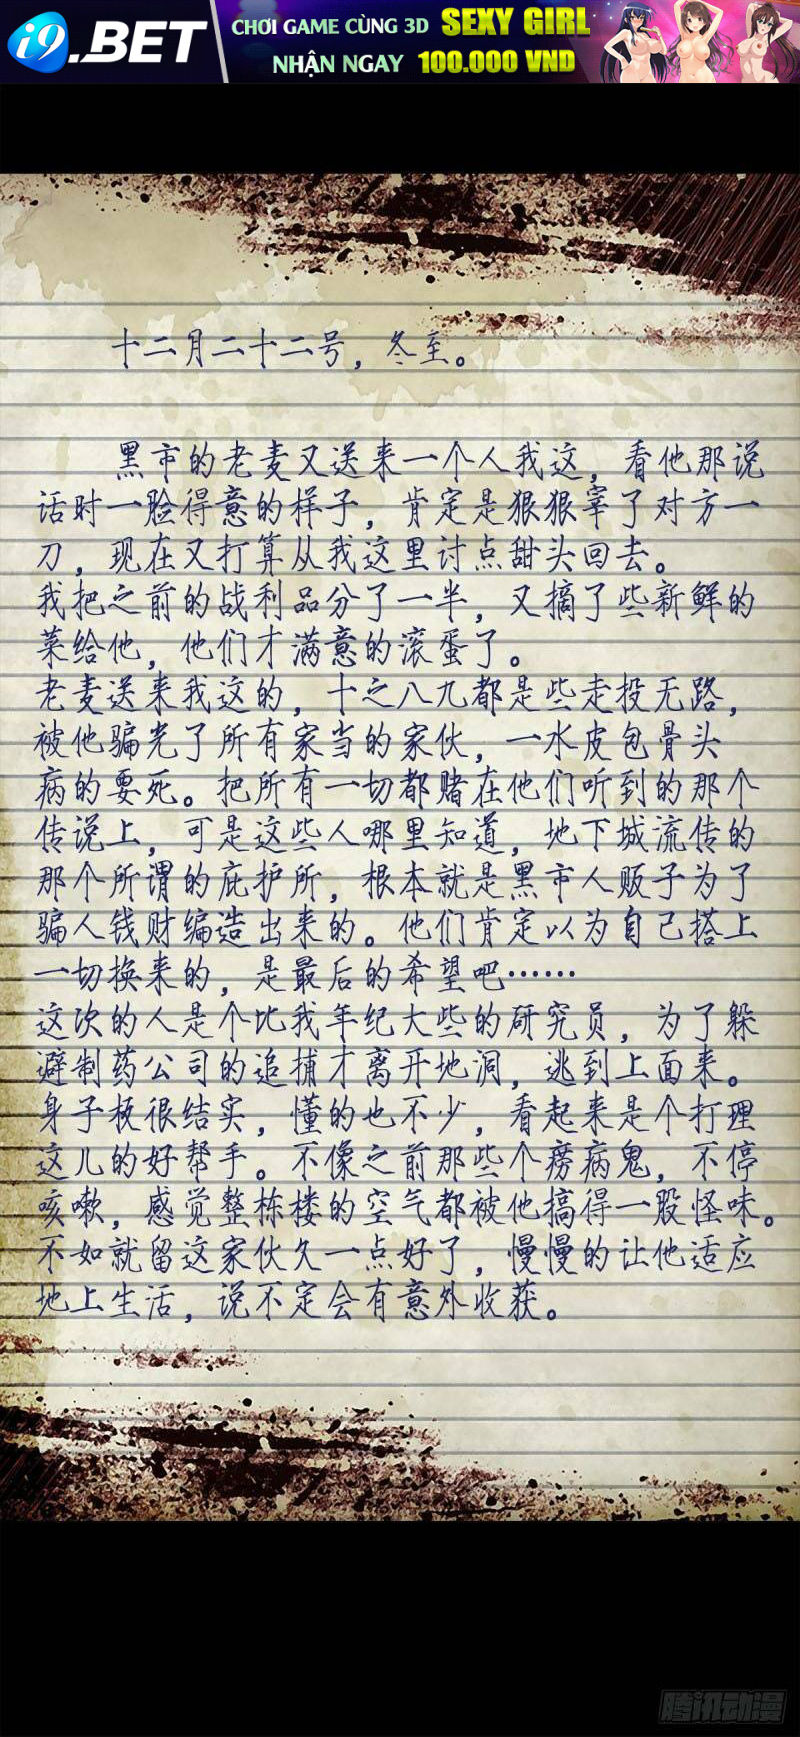 i9.BET
CHƠI GAME CÙNG 3D SEXY GIRL
NHẬN NGAY 100.000 VND
十二月二十二号，冬至。
黑市的老麦又送来一个人我这，看他那说
话时一脸得意的样子，肯定是狠狠宰了对方一
刀，现在又打算从我这里讨点甜头回去。
我把之前的战利品分了一半，又搞了些新鲜的
菜给他，他们才满意的滚蛋了。
老麦送来我这的，十之八九都是些走投无路，
被他骗光了所有家当的家伙，一水皮包骨头
病的要死。把所有一切都赌在他们听到的那个
传说上，可是这些人哪里知道，地下城流传的
那个所谓的庇护所，根本就是黑市人贩子为了
骗人钱财编造出来的。他们肯定以为自己搭上
一切换来的，是最后的希望吧……
这次的人是个比我年纪大些的研究员，为了躲
避制药公司的追捕才离开地洞，逃到上面来。
身子板很结实，懂的也不少，看起来是个打理
这儿的好帮手。不像之前那些个痨病鬼，不停
咳嗽，感觉整栋楼的空气都被他搞得一股怪味。
不如就留这家伙久一点好了，慢慢的让他适应
地上生活，说不定会有意外收获。
腾讯动漫